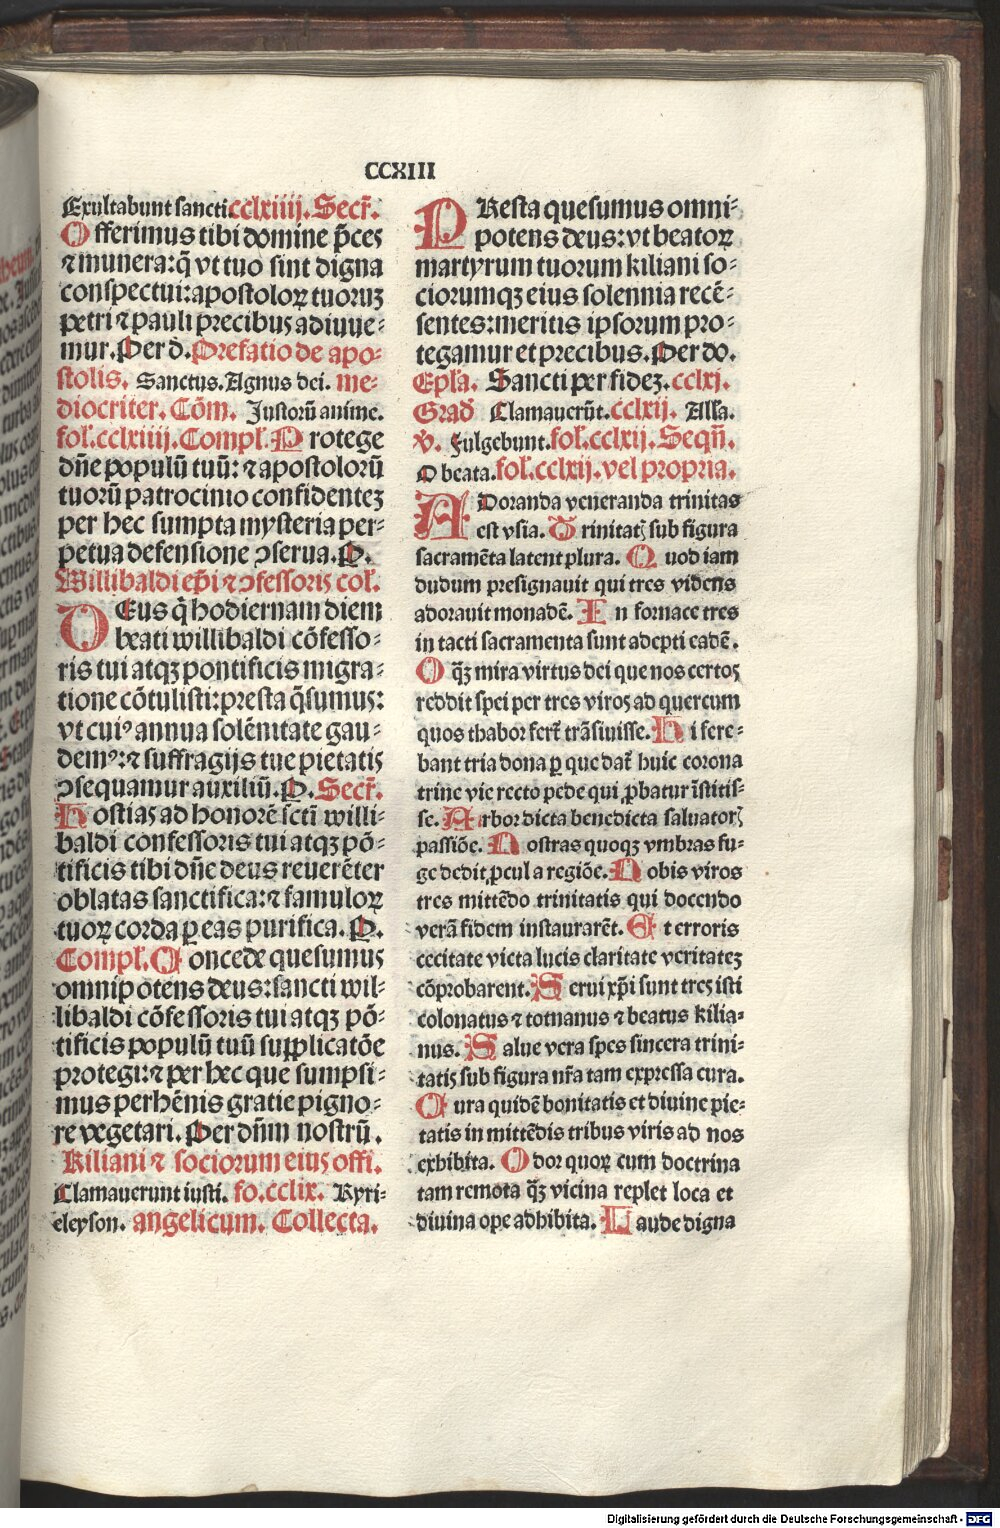 CCXIII
Exultabunt sancti. cclxiiij. Secr̄.
Offerimus tibi domine p̄ces
⁊ munera: q̄ vt tuo sint digna
conspectui: apostoloꝝ tuoruꝫ
petri ⁊ pauli precibus adiuue⸗
mur. Per d. Prefatio de apo⸗
stolis. Sanctus. Agnus dei. me⸗
diocriter. Cōm. Justorū anime.
fol̄. cclxiiij. Compl̄. Protege
dn̄e populū tuū: ⁊ apostolorū
tuorū patrocinio confidenteꝫ
per hec sumpta mysteria per⸗
petua defensione ꝯserua. P.
Willibaldi ep̄i ⁊ ꝯfessoris col̄.
DEus q̄ hodiernam diem
beati willibaldi cōfesso⸗
ris tui atqꝫ pontificis migra⸗
tione cōtulisti: presta q̄sumus:
vt cuiꝰ annua solēnitate gau⸗
demꝰ: ⁊ suffragijs tue pietatis
ꝯsequamur auxiliū. P. Secr̄.
Hostias ad honorē sc̄ti willi⸗
baldi confessoris tui atqꝫ pō⸗
tificis tibi dn̄e deus reuerēter
oblatas sanctifica: ⁊ famuloꝝ
tuoꝝ corda ꝑ eas purifica. P.
Compl̄. Concede quesumus
omnipotens deus: sancti wil⸗
libaldi cōfessoris tui atqꝫ pō⸗
tificis populū tuū supplicatōe
protegi: ⁊ per hec que sumpsi⸗
mus perhēnis gratie pigno⸗
re vegetari. Per dn̄m nostrū.
Kiliani ⁊ sociorum eius offi.
Clamauerunt iusti. fo. cclix. Kyri⸗
eleyson. angelicum. Collecta.
PResta quesumus omni⸗
potens deus: vt beatoꝝ
martyrum tuorum kiliani so⸗
ciorumqꝫ eius solennia recē⸗
sentes: meritis ipsorum pro⸗
tegamur et precibus. Per do.
Epl̄a. Sancti per fideꝫ. cclxj.
Grad̄ Clamauerūt. cclxij. All̄a.
v̄. Fulgebunt. fol̄. cclxij. Seqn̄.
O beata. fol̄. cclxij. vel propria.
ADoranda veneranda trinitas
est vsia. Trinitatꝭ sub figura
sacramēta latent plura. Quod iam
dudum presignauit qui tres videns
adorauit monadē. In fornace tres
in tacti sacramenta sunt adepti eadē.
O q̄ꝫ mira virtus dei que nos certos
reddit spei per tres viros ad quercum
quos thabor fert̄ trāsiuisse. Hi fere⸗
bant tria dona ꝑ que dat̄ huic corona
trine vie recto pede qui ꝓbatur īstitis⸗
se. Arbor dicta benedicta saluatorꝭ
passiōe. Nostras quoqꝫ vmbras fu⸗
ge dedit ꝓcul a regiōe. Nobis viros
tres mittēdo trinitatis qui docendo
verā fidem instaurarēt. Et erroris
cecitate victa lucis claritate veritateꝫ
cōprobarent. Serui xp̄i sunt tres isti
colonatus ⁊ totnanus ⁊ beatus kilia⸗
nus. Salue vera spes sincera trini⸗
tatis sub figura nr̄a tam expressa cura.
Cura quidē bonitatis et diuine pie⸗
tatis in mittēdis tribus viris ad nos
exhibita. Odor quoꝝ cum doctrina
tam remota q̄ꝫ vicina replet loca et
diuina ope adhibita. Laude digna
Digitalisierung gefördert durch die Deutsche Forschungsgemeinschaft - DFG